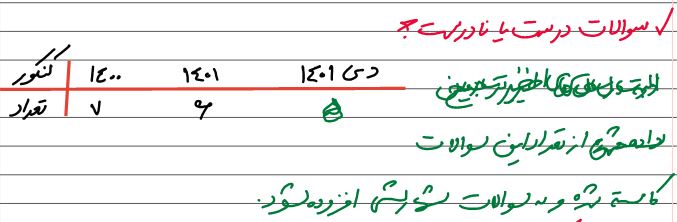 ✓ سوالات درست یا نادرست *
کنکور | ۱۴۰۰ | ۱۴۰۱ | دی ۱۴۰۱
تعداد | ۷ | ۶
از تعداد این سوالات
کاسته شده و به سوالات شمارشی افزوده شود.